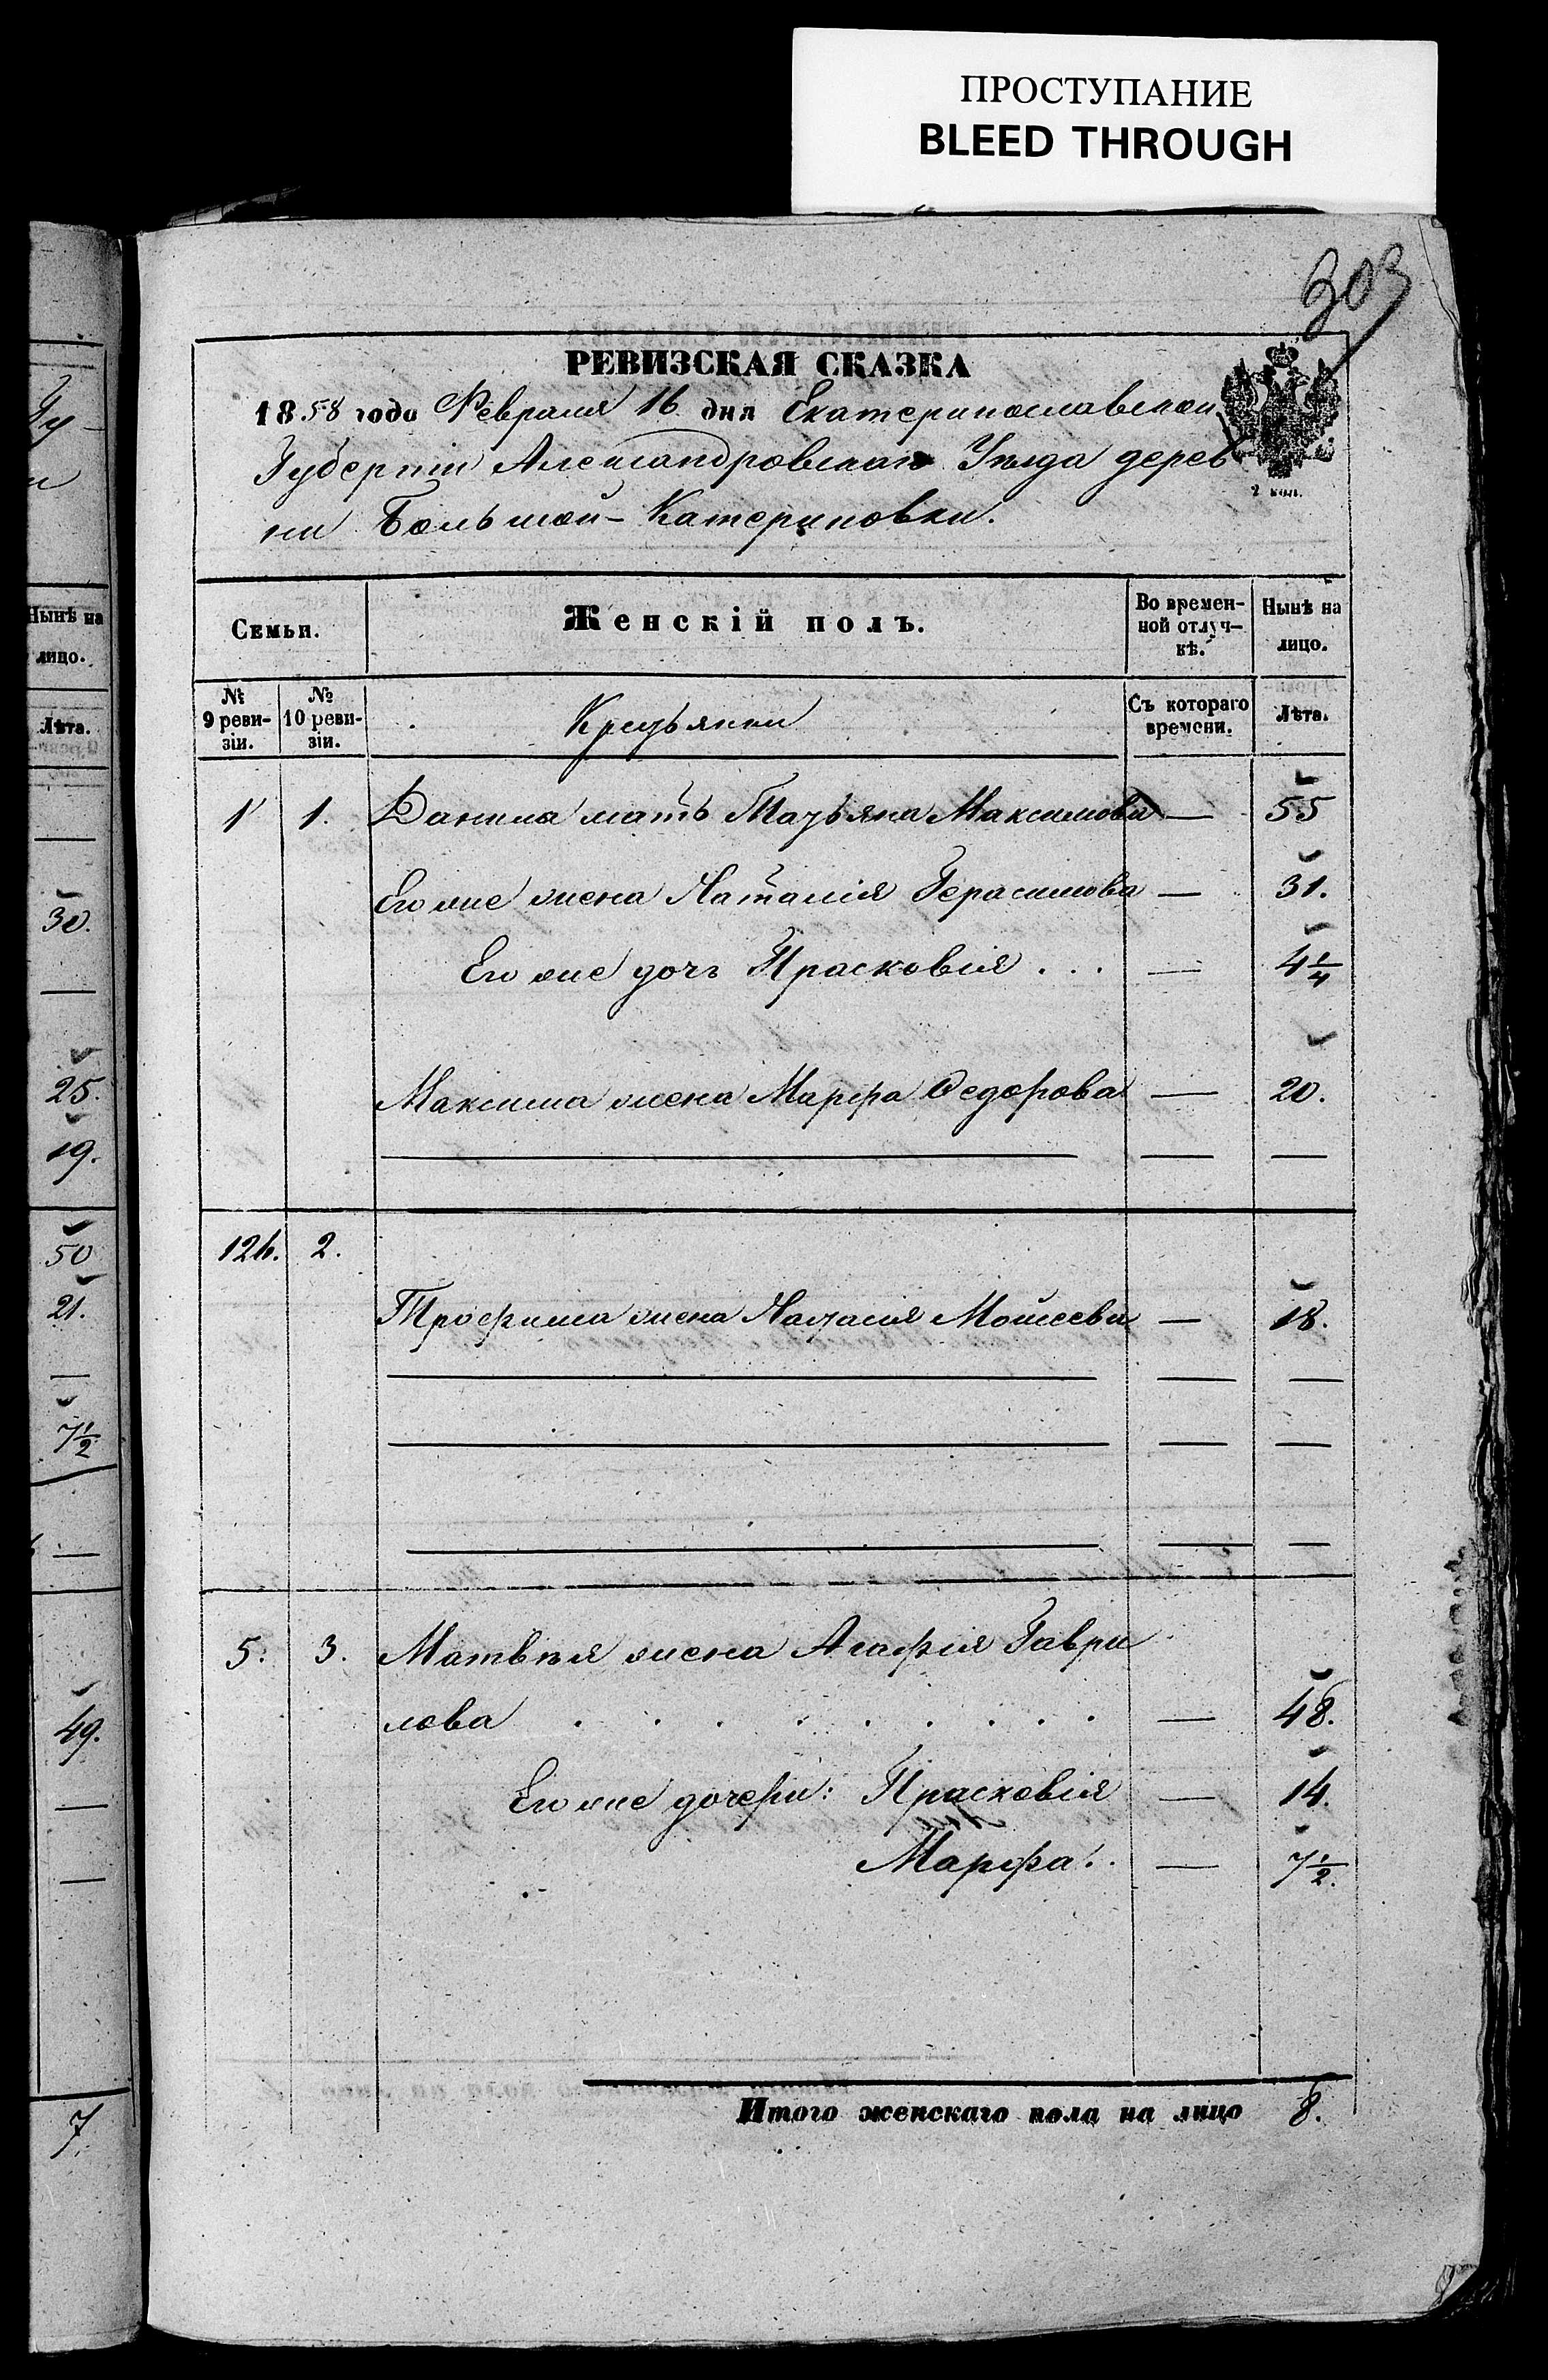 ПРОСТУПАНИЕ
BLEED THROUGH
303
РЕВИЗСКАЯ СКАЗКА
1858 года Февраля 16 дня Екатеринославской
Губерніи Александровскаго Уѣзда дерев
ни Большой-Катериновки.
2 коп.
Семьи. Женскій полъ. Во времен- Нынѣ на
ной отлуч- лицо.
кѣ.
№ № Съ котораго Лѣта.
9 реви- 10 реви- Крестьянки времени.
зіи. зіи.
1 1. Данила мать Татьяна Максимова — 55
Его же жена Наталія Герасимова — 31.
Его же дочь Прасковія . . . — 4 1/4
Максима жена Марфа Федорова — 20.
126. 2.
Трофима жена Моисеева — 18.
5. 3. Матвѣя жена Агафія Гаври
лова . . . . . . . . . — 48.
Его же дочери: Прасковія — 14.
Марфа . . — 7 1/2.
Итого женскаго пола на лицо 8.
Нынѣ на
лицо.
Лѣта.
30.
25.
19.
50
21.
7 1/2
49.
7